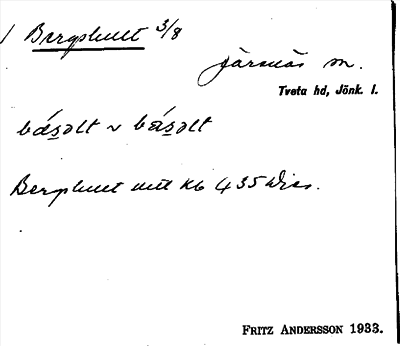 1 Bergshult 3/8
Järsnäs sn.
Tveta hd, Jönk. l.
bás̲ɔlt v bás̲ɔlt
Bergshult mtl Kb 435
FRITZ ANDERSSON 1933.